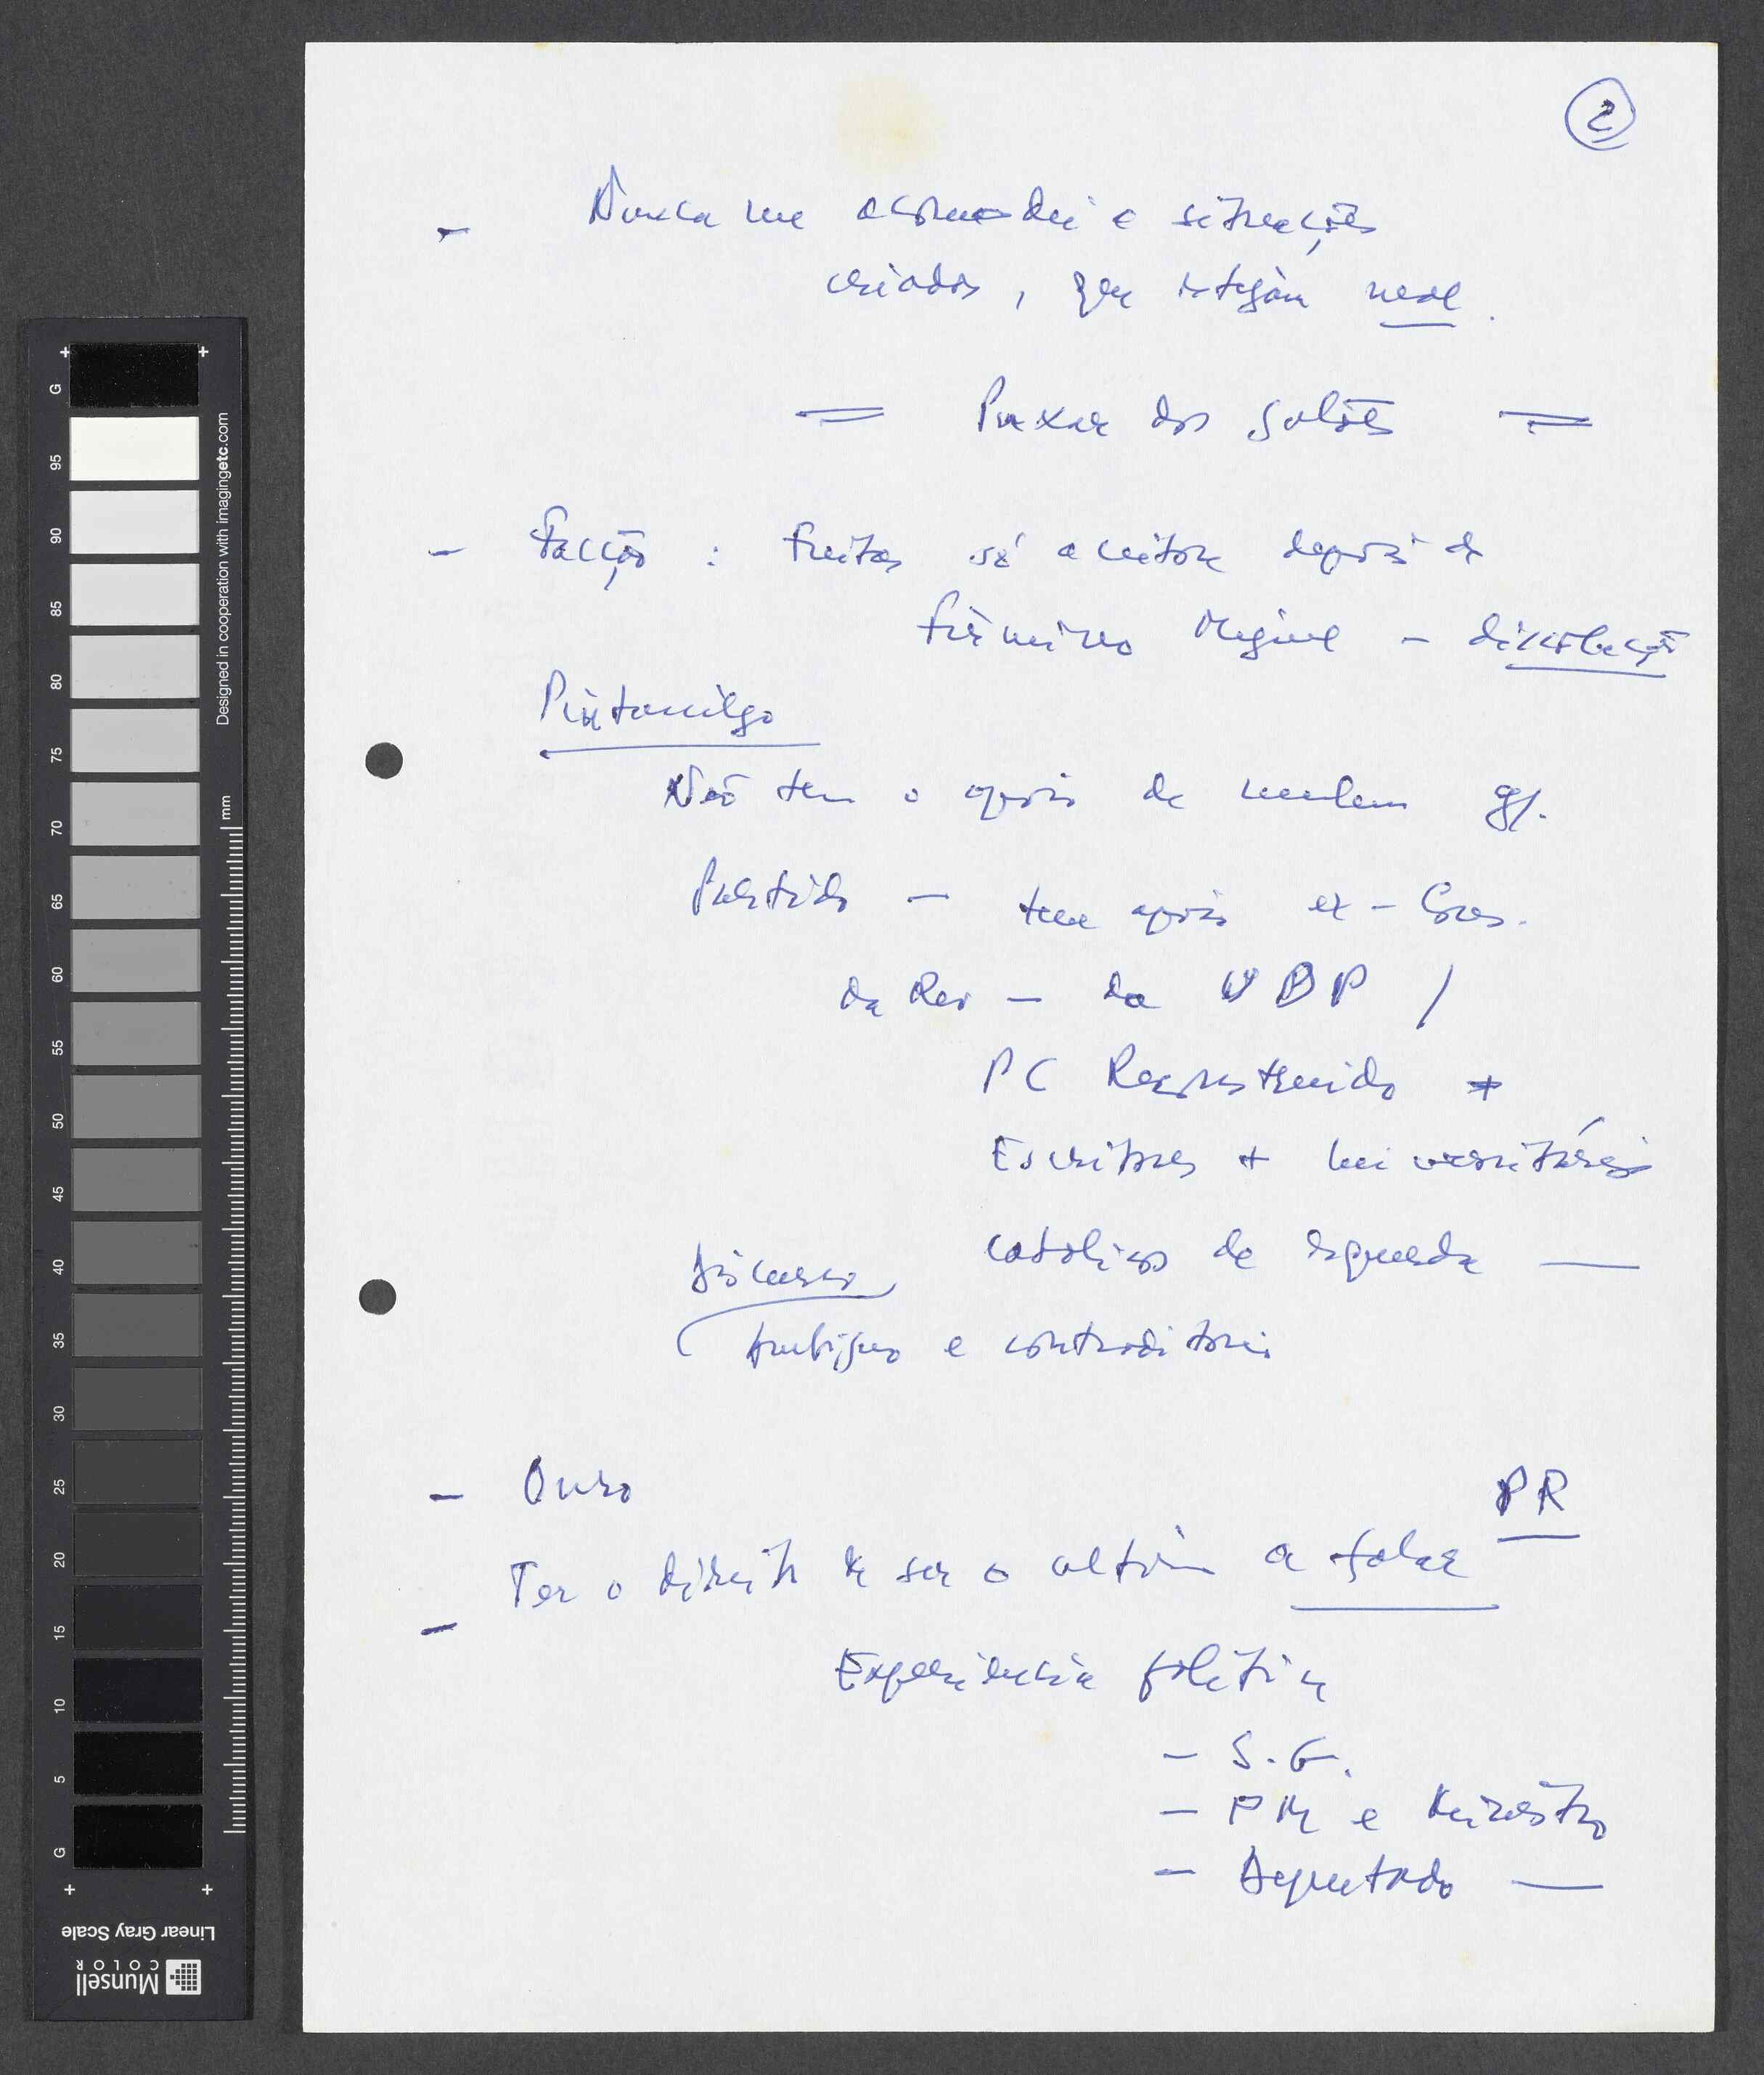 2
- Nunca me acomodei a situações
criadas, que estejam mal.
= Puxar dos galões =
- Facção : Freitas só aceitou depois de
Firmino Miguel - dissolução
Pintasilgo
Não tem o apoio de nenhum gr.
Partido - tem apoio ex-Cons.
da Rev - da UDP /
PC Reconstruido +
Escritores + universitários
católicos de esquerda —
Discurso
Ambiguo e contraditorio
- Ouro
PR
- Ter o direito de ser o ultimo a falar
Experiência politica
- S.G.
- PM e Ministro
- Deputado —
G
95
90
85
80
75
70
65
60
55
50
45
40
35
30
25
20
15
10
5
G
Designed in cooperation with imagingetc.com
mm
Linear Gray Scale
Munsell
COLOR